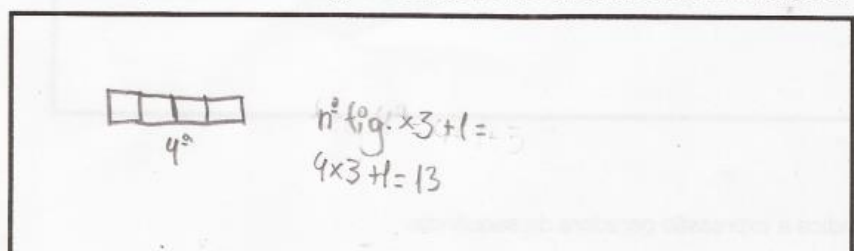 4ª
nº fig. x3+1=
4x3+1=13